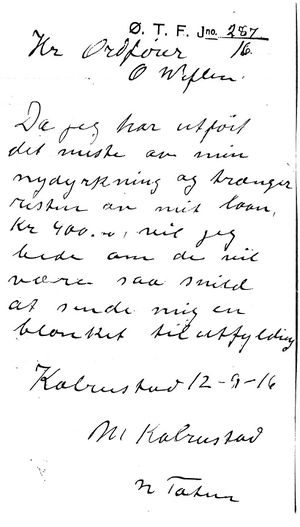 Ø. T. F. Jno. 287/16
Hr Ordfører
O Weflen.
Da jeg har utført
det meste av min
nydyrkning og trænger
resten av mit laan,
Kr 400.-, vil jeg
bede om de vil
være saa snild
at sende mig en
blanket til utfylding
Kolrustad 12-9-16
M Kolrustad